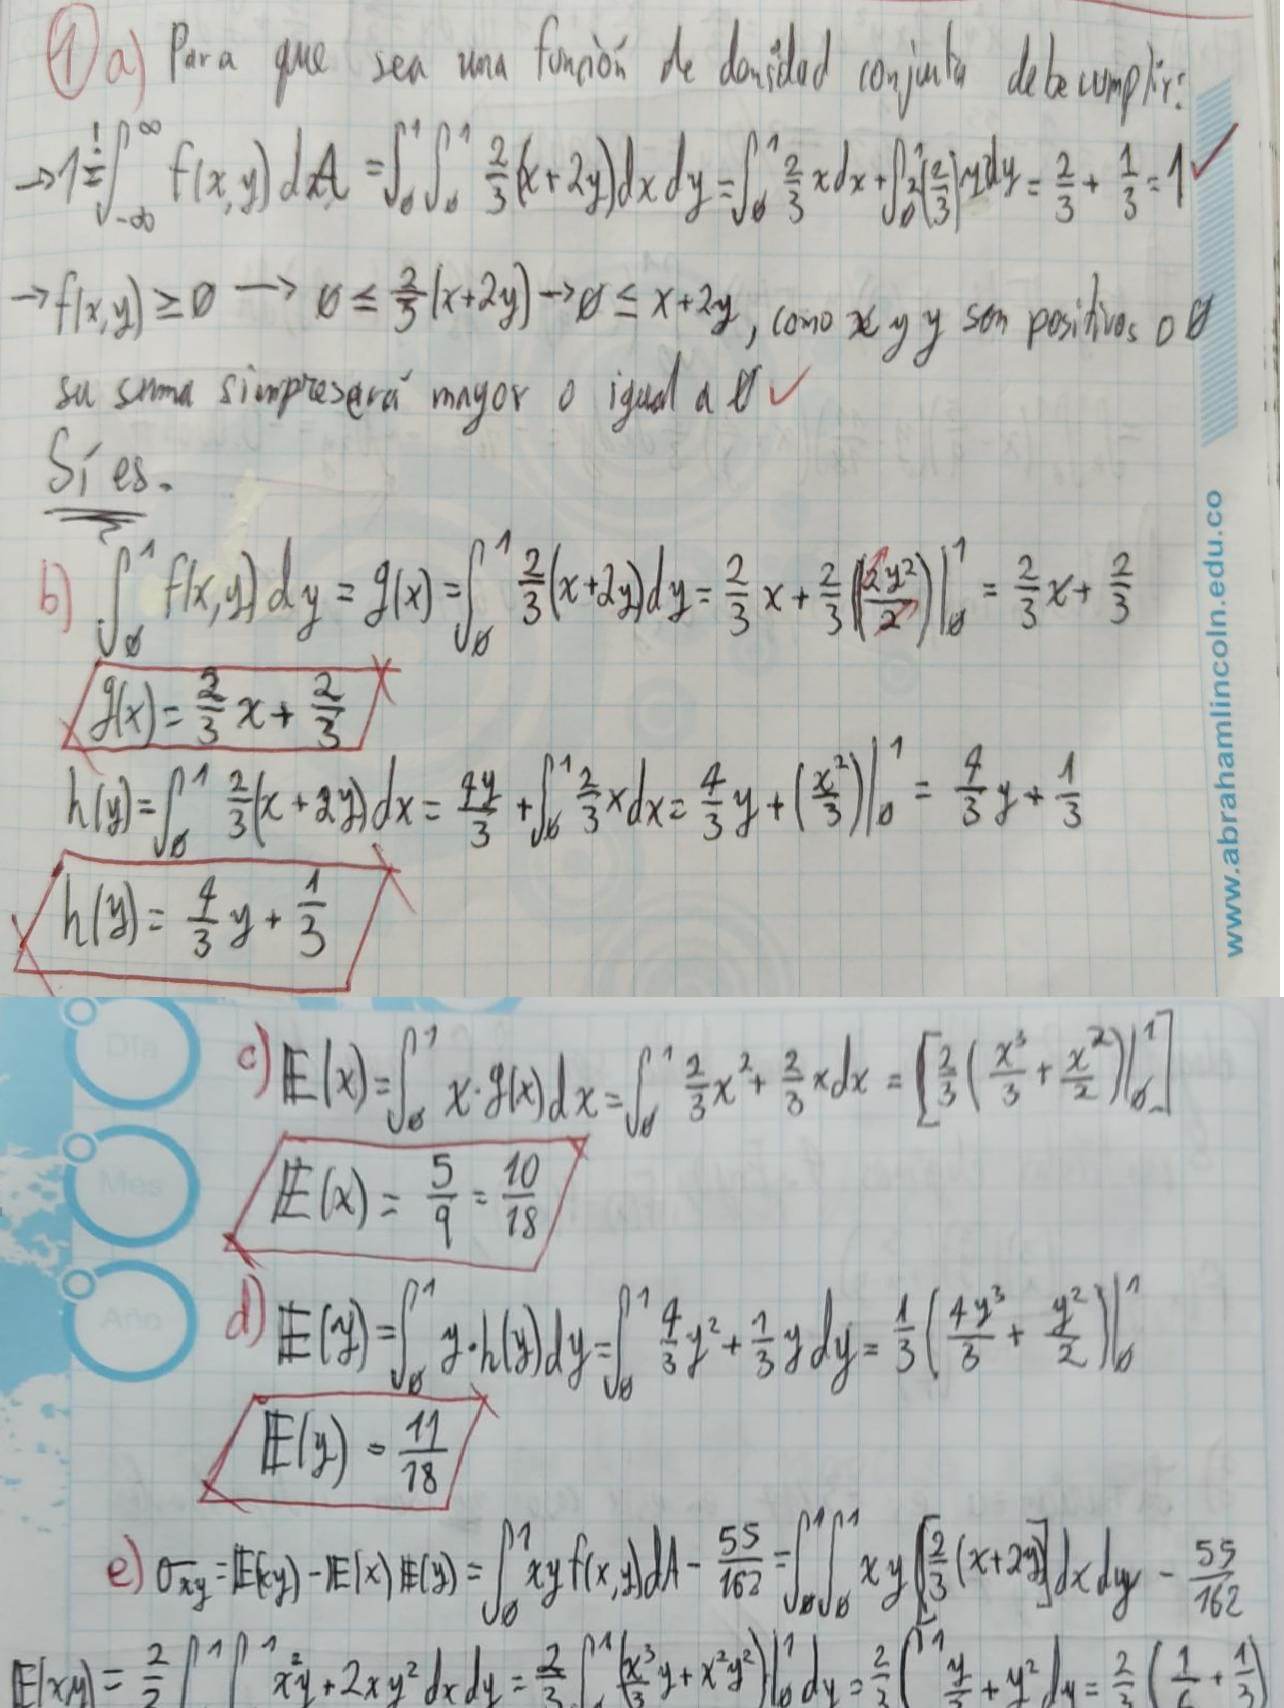 ① a) Para que sea una función de densidad conjunta debe cumplir:
→ 1 =! ∫_{-∞}^{∞} f(x,y) dA = ∫_0^1 ∫_0^1 2/3 (x+2y) dx dy = ∫_0^1 2/3 x dx + ∫_0^1 2(2/3) y dy = 2/3 + 1/3 = 1 ✓
→ f(x,y) ≥ 0 → 0 ≤ 2/3 (x+2y) → 0 ≤ x+2y, como x y y son positivos o 0
su suma siempre será mayor o igual a 0 ✓
Sí es.
b) ∫_0^1 f(x,y) dy = g(x) = ∫_0^1 2/3 (x+2y) dy = 2/3 x + 2/3 (2y²/2)|_0^1 = 2/3 x + 2/3
g(x) = 2/3 x + 2/3
h(y) = ∫_0^1 2/3 (x+2y) dx = 4y/3 + ∫_0^1 2/3 x dx = 4/3 y + (x²/3)|_0^1 = 4/3 y + 1/3
h(y) = 4/3 y + 1/3
www.abrahamlincoln.edu.co
Día
Mes
Año
c) E(x) = ∫_0^1 x·g(x) dx = ∫_0^1 2/3 x² + 2/3 x dx = [2/3 (x³/3 + x²/2)|_0^1]
E(x) = 5/9 = 10/18
d) E(y) = ∫_0^1 y·h(y) dy = ∫_0^1 4/3 y² + 1/3 y dy = 1/3 (4y³/3 + y²/2)|_0^1
E(y) = 11/18
e) σ_xy = E(xy) - E(x) E(y) = ∫_0^1 xy f(x,y) dA - 55/162 = ∫_0^1 ∫_0^1 xy [2/3 (x+2y)] dx dy - 55/162
E(xy) = 2/3 ∫_0^1 ∫_0^1 x²y + 2xy² dx dy = 2/3 ∫_0^1 (x³/3 y + x²y²)|_0^1 dy = 2/3 ∫_0^1 y/3 + y² dy = 2/3 (1/6 + 1/3)